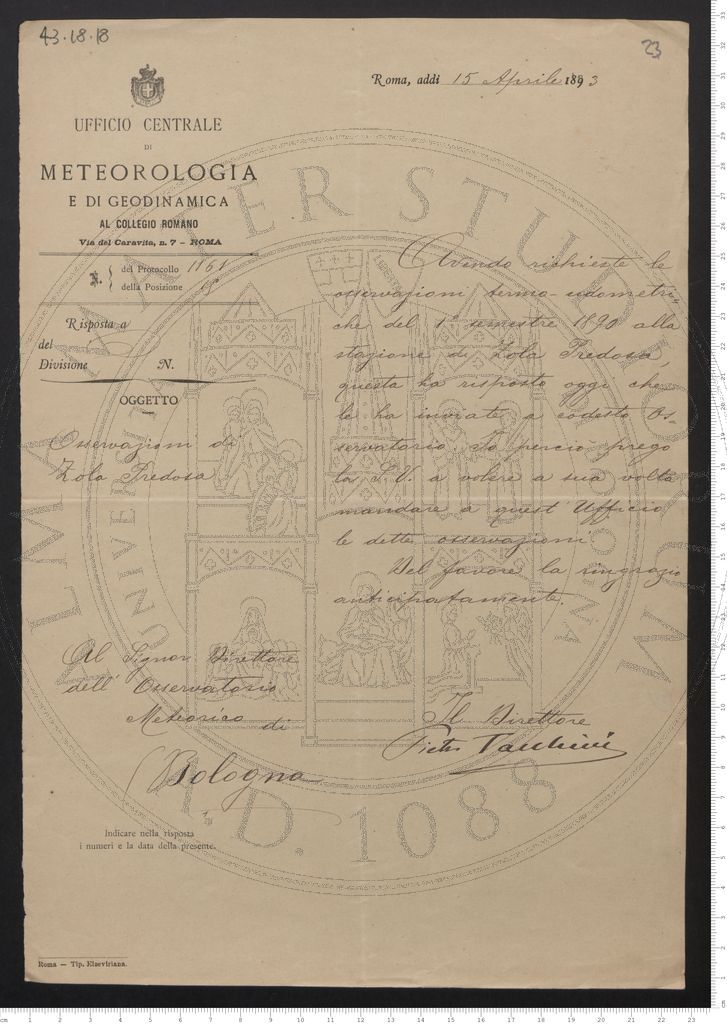 43.18.18
23
Roma, addì 15 Aprile 1893
UFFICIO CENTRALE
DI
METEOROLOGIA
E DI GEODINAMICA
AL COLLEGIO ROMANO
Via del Caravita, n. 7 – ROMA
N. del Protocollo
della Posizione
Risposta a
del
Divisione N.
OGGETTO
Osservazioni di
Zola Predosa
Avendo richieste le
osservazioni termo-udometri-
che del 1° semestre 1890 alla
stazione di Zola Predosa,
questa ha risposto oggi che
le ha inviate a codesto Os-
servatorio. Io perciò prego
la S.V. a volere a sua volta
mandare a quest'Ufficio
le dette osservazioni.
Del favore la ringrazio
anticipatamente.
Al Signor Direttore
dell'Osservatorio
Meteorico di
Bologna
Il Direttore
Pietro Tacchini
Indicare nella risposta
i numeri e la data della presente.
Roma — Tip. Elzeviriana.
ALMA MATER STUDIORUM
A.D. 1088